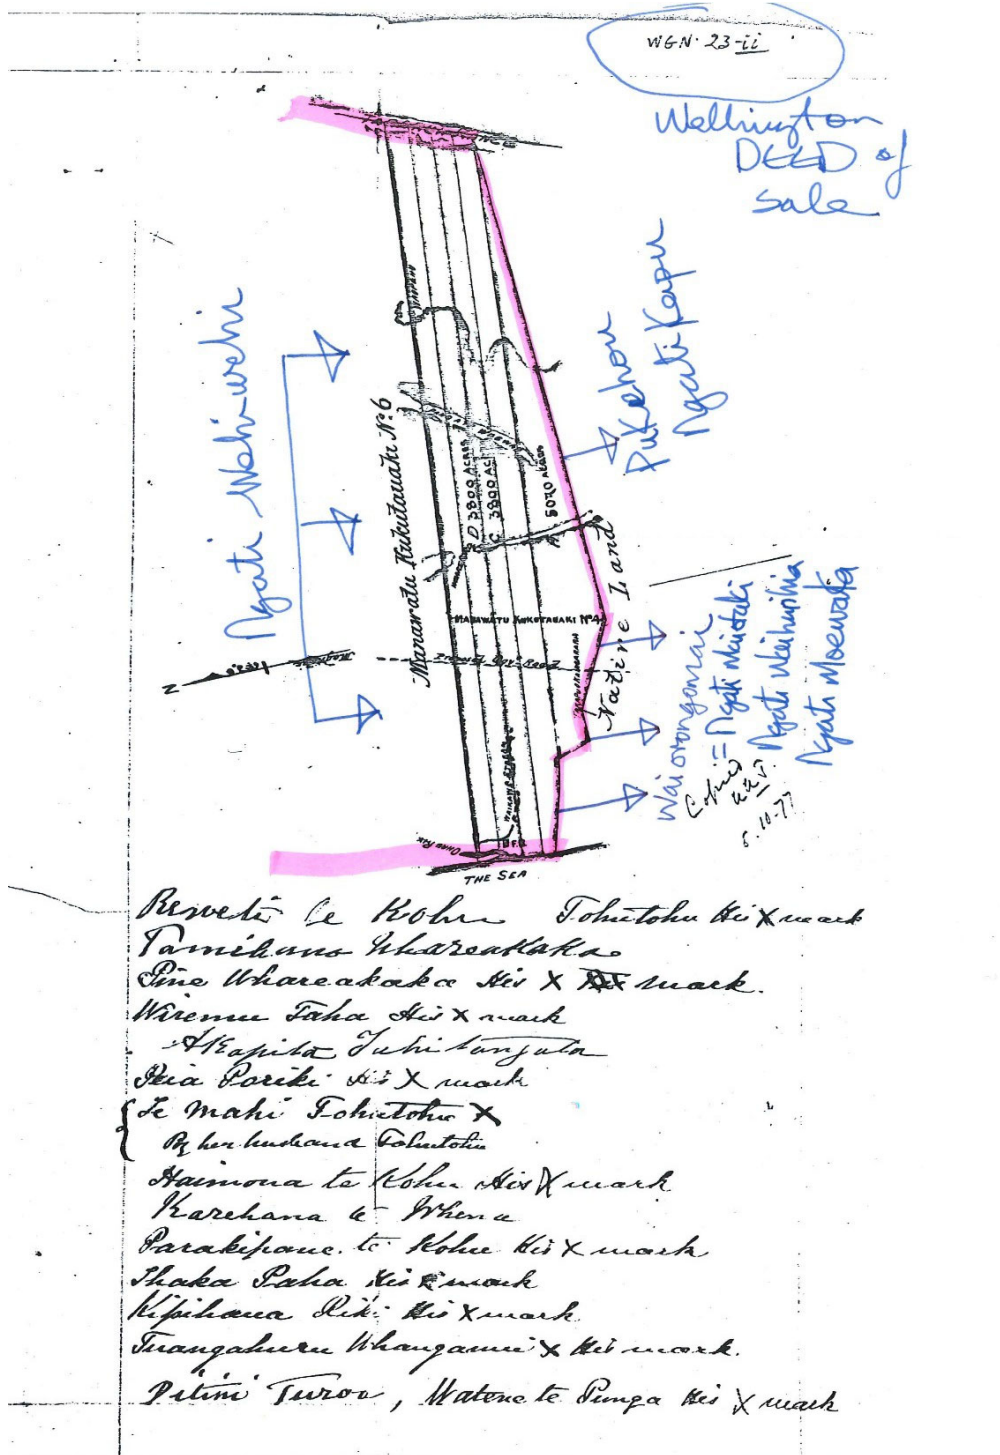 WGN. 23-ii
Wellington
DEED of
Sale
Ngati Wehiwehi
Pukehou
Ngati Kapu
Manawatu Kukutauaki No. 6
D 3800 ACRES
C 3800 AC
A 5020 ACRES
MANAWATU KUKUTAUAKI No 4
Native Land
N
Waiorongomai
= Ngati
Ngati
Ngati Moewaka
Copied
5.10.77
THE SEA
te Kohu Tohutohu His X mark
Tamihana Whareakaka
Pine Whareakaka His X mark.
Wiremu Taha His X mark
Akapita
Poriki His X mark
Te Mahi Tohutohu X
By her husband Tohutohu
Haimona te Kohu His X mark
Karehana te Whena
Parakipane te Kohu His X mark
Ihaka Paha His X mark
Kipihana Riki His X mark
Tuangahuru Whanganui X His mark.
Pitini Turoa, Watene te Punga His X mark